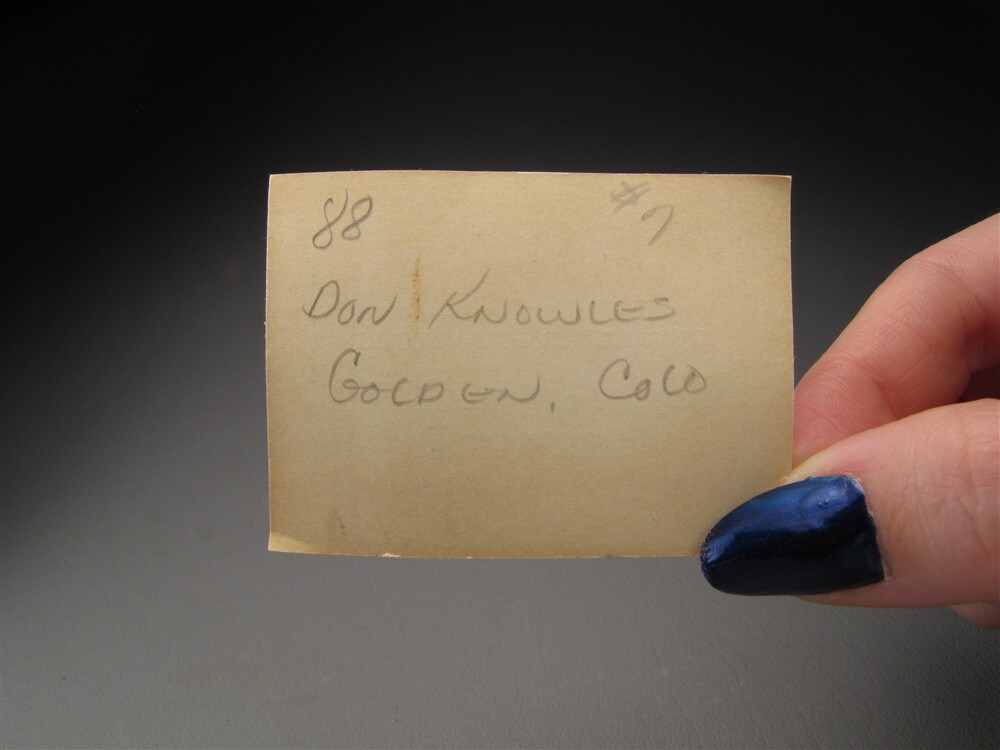 88 #7
Don Knowles
Golden, Colo